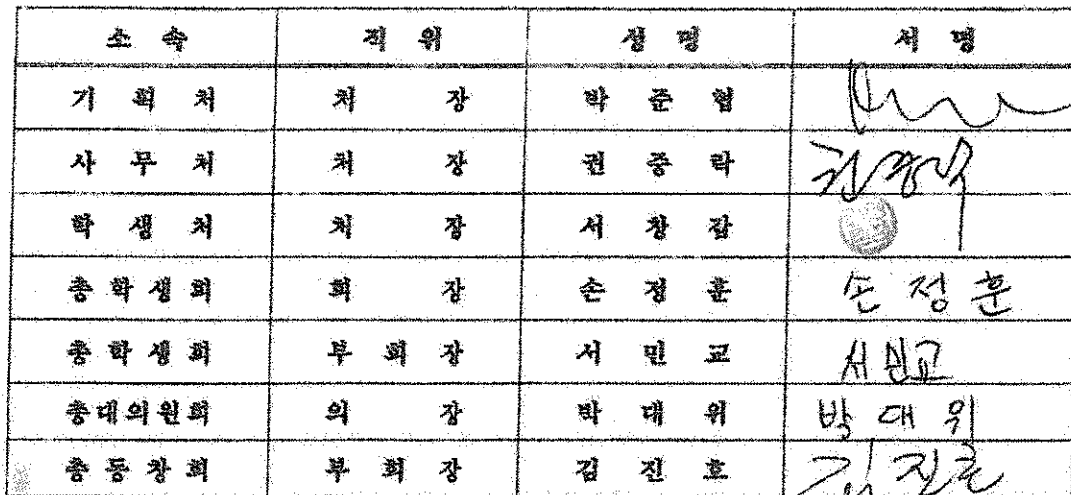 소 속 직 위 성 명 서 명
기 획 처 처 장 박 준 협
사 무 처 처 장 권 중 락 권중락
학 생 처 처 장 서 창 갑
총 학 생 회 회 장 손 정 훈 손 정 훈
총 학 생 회 부 회 장 서 민 교 서민교
총대의원회 의 장 박 대 위 박 대 위
총 동 창 회 부 회 장 김 진 호 김진호